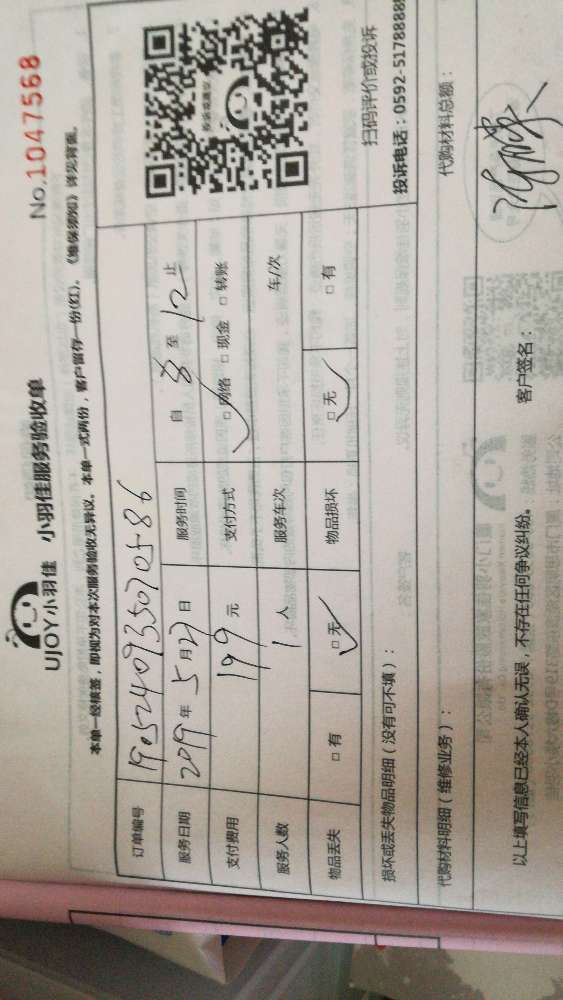 UJOY小羽佳 小羽佳服务验收单
No.1047568
本单一经核签，即视为对本次服务验收无异议。本单一式两份，客户留存一份(红)。《维保须知》详见背面。
订单编号 1905240935070586
服务日期 2019年5月27日 服务时间 自8至12止
支付费用 199元 支付方式 □网络 □现金 □转账
服务人数 1人 服务车次 车/次
物品丢失 □有 □无 物品损坏 □无 □有
扫码评价或投诉
投诉电话：0592-5178888
损坏或丢失物品明细（没有可不填）：
代购材料明细（维修业务）： 代购材料总额：
以上填写信息已经本人确认无误，不存在任何争议纠纷。 客户签名：